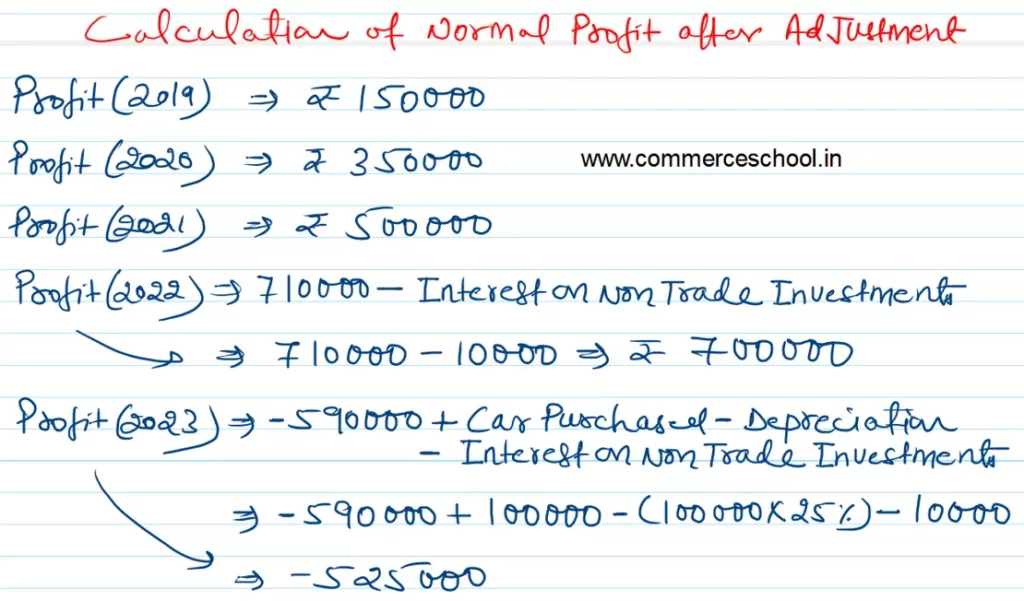 Calculation of Normal Profit after Adjustment
Profit (2019) ⇒ ₹ 150000
Profit (2020) ⇒ ₹ 350000
www.commerceschool.in
Profit (2021) ⇒ ₹ 500000
Profit (2022) ⇒ 710000 - Interest on Non Trade Investments
⇒ 710000 - 10000 ⇒ ₹ 700000
Profit (2023) ⇒ -590000 + Car Purchased - Depreciation
- Interest on Non Trade Investments
⇒ -590000 + 100000 - (100000 X 25%) - 10000
⇒ -525000